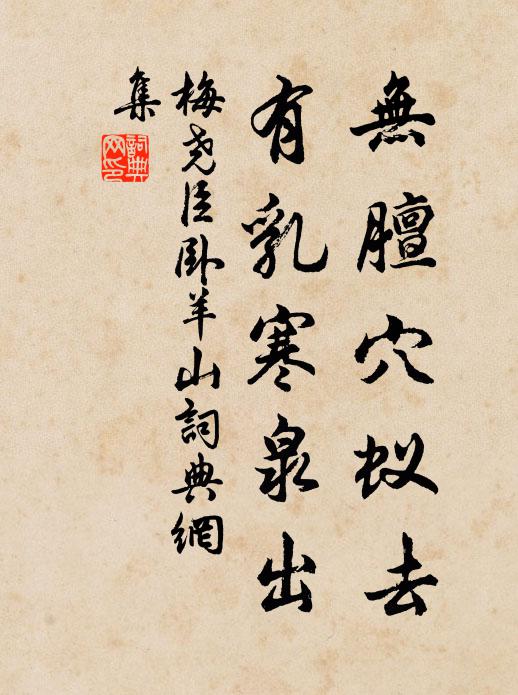 無膻穴蚁去
有乳寒泉出
梅尧臣卧羊山詞典網
集
詞典
网印